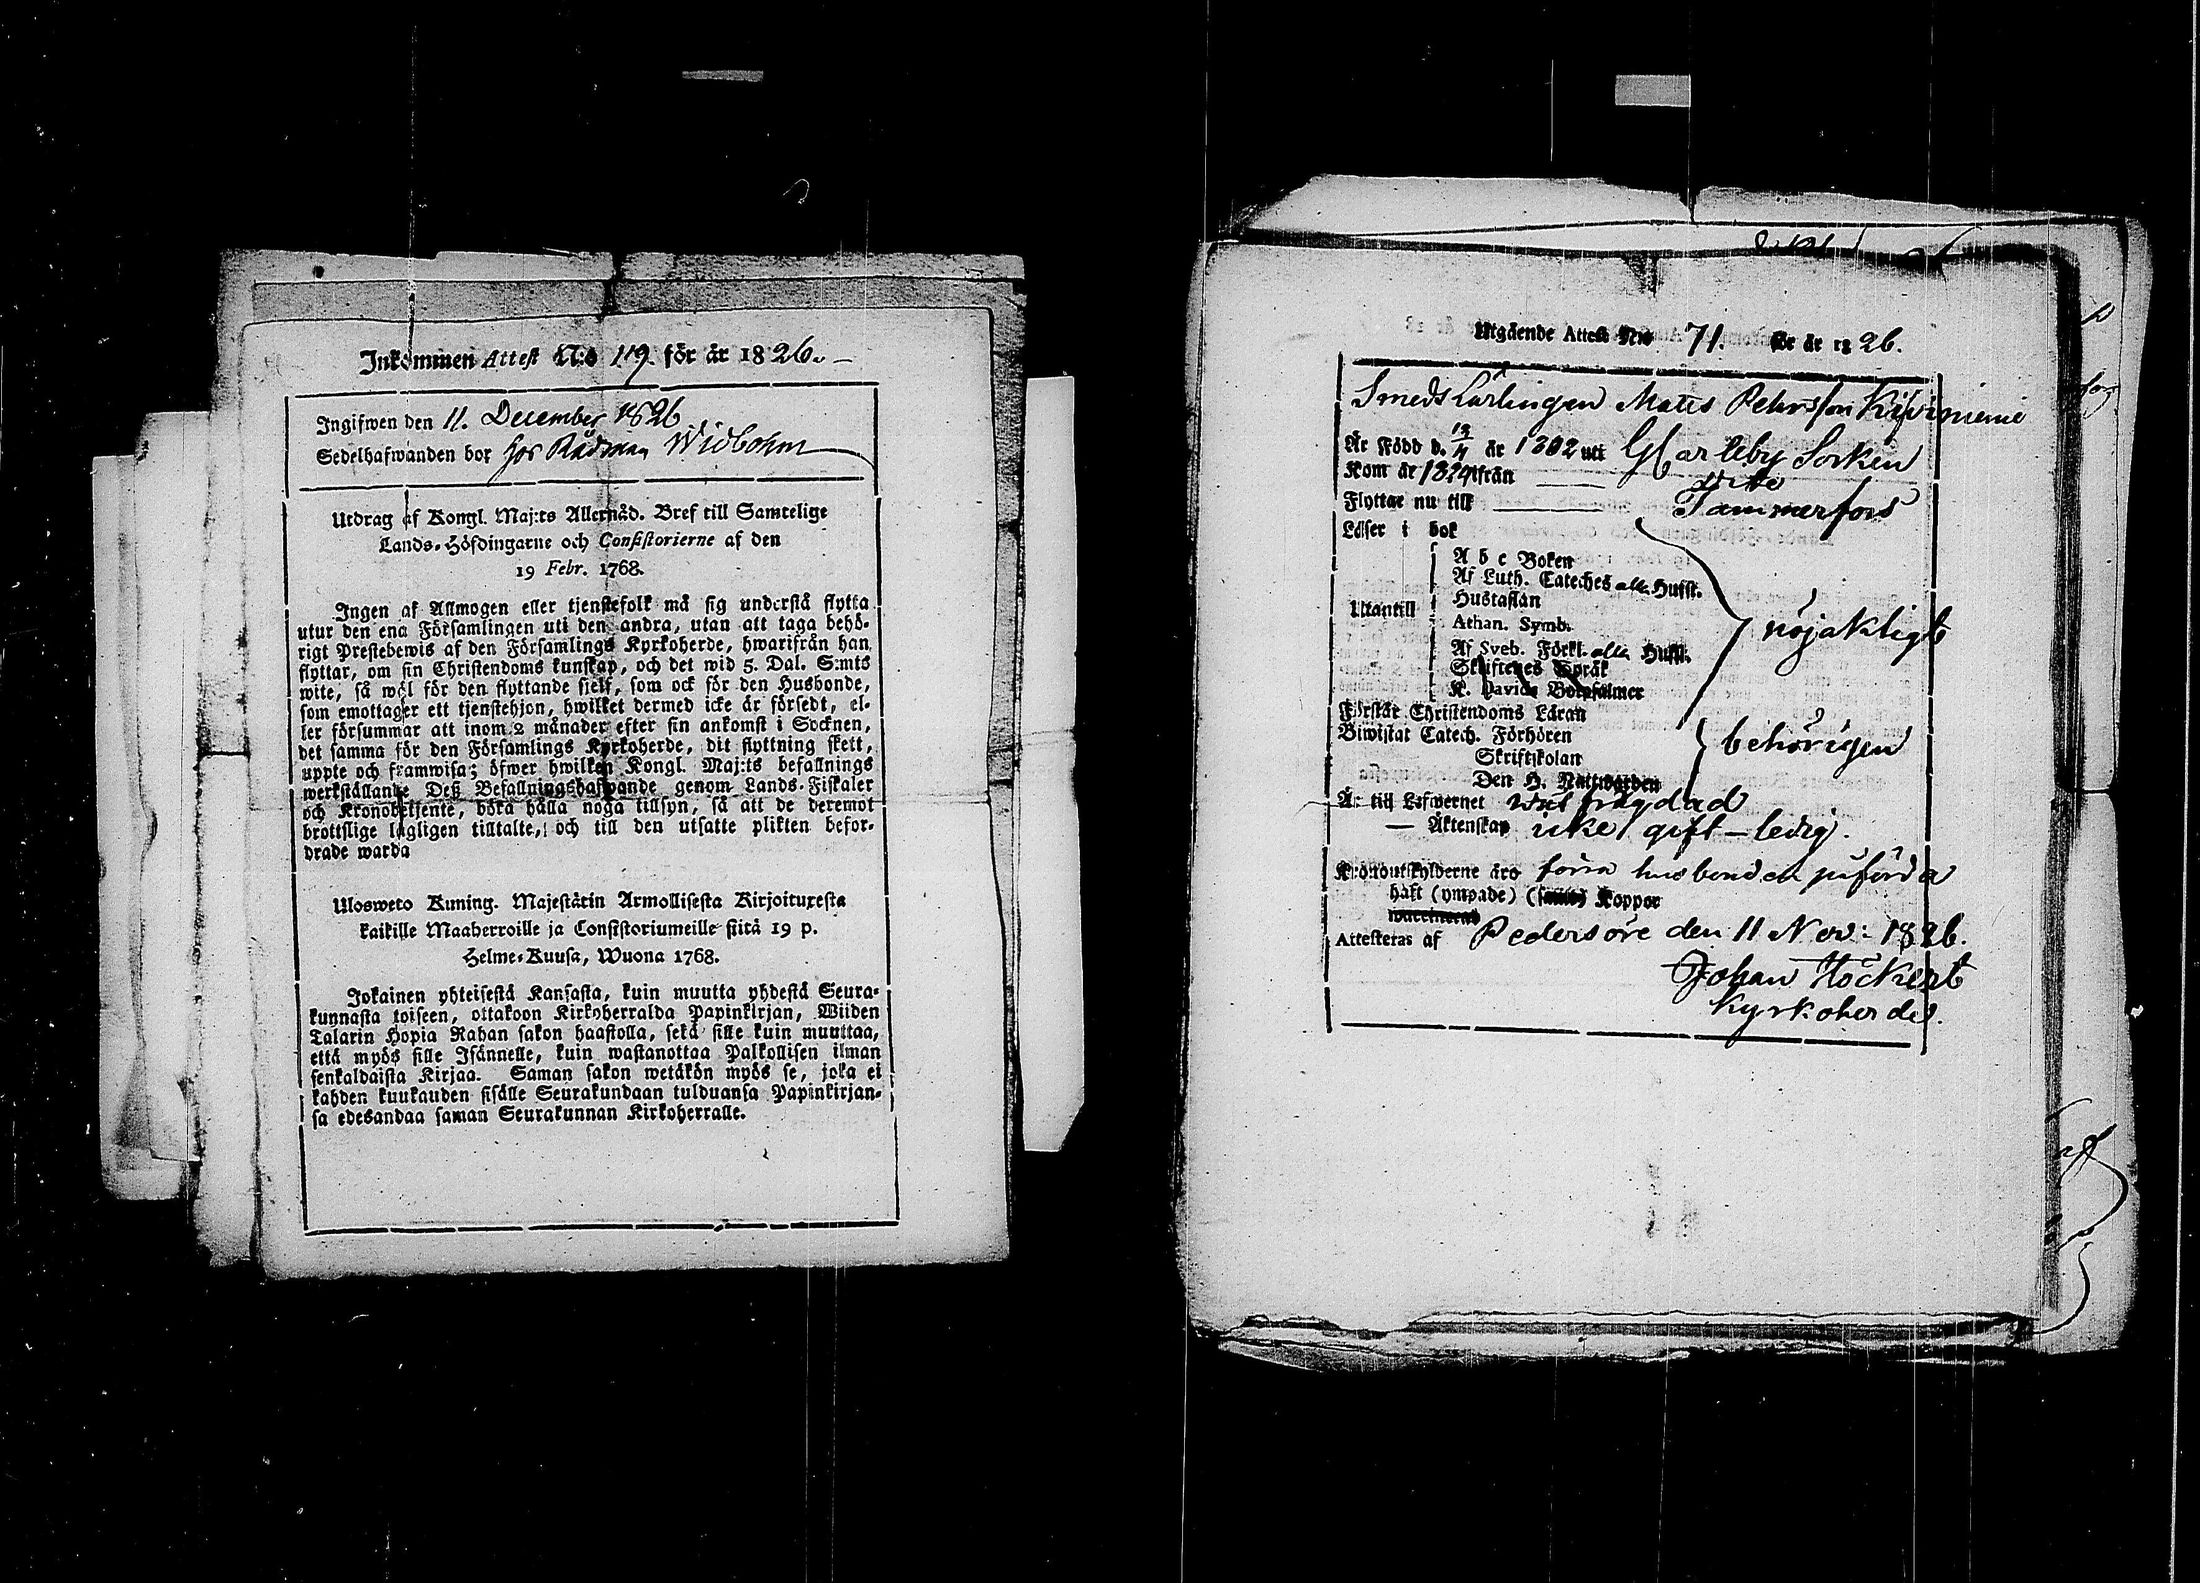 Inkommen Attest N:o 119. för år 1826.
Ingifwen den 11. December 1826
Sedelhafwanden bor hos Rådman Widbohm
Utdrag af Kongl. Maj:ts Allernåd. Bref till Samtelige
Lands-Höfdingarne och Consistorierne af den
19 Febr. 1768.
Ingen af Allmogen eller tjenstefolk må sig understå flytta
utur den ena Församlingen uti den andra, utan att taga behö-
rigt Prestebewis af den Församlings Kyrkoherde, hwarifrån han
flyttar, om sin Christendoms kunskap, och det wid 5. Dal. S:mts
wite, så wäl för den flyttande sielf, som ock för den Husbonde,
som emottager ett tjenstehjon, hwilket dermed icke är försedt, el-
ler försummar att inom 2 månader efter sin ankomst i Socknen,
det samma för den Församlings Kyrkoherde, dit flyttning skett,
uppte och framwisa; öfwer hwilken Kongl. Maj:ts befallnings
werkställande Deß Befallningshafwande genom Lands-Fiskaler
och Kronobetjente, böra hålla noga tillsyn, så att de deremot
brottslige lagligen tilltalte, och till den utsatte plikten befor-
drade warda
Ulosweto Kuning. Majestätin Armollisesta Kirjoituxesta
kaikille Maaherroille ja Consistoriumeille siitä 19 p.
Helme-Kuusa, Wuona 1768.
Jokainen yhteisestä Kansasta, kuin muutta yhdestä Seura-
kunnasta toiseen, ottakoon Kirkoherralda Papinkirjan, Wiiden
Talarin Hopia Rahan sakon haastolla, sekä sille kuin muuttaa,
että myös sille Isännelle, kuin wastanottaa Palkollisen ilman
senkaldaista Kirjaa. Saman sakon wetäkön myös se, joka ei
kahden kuukauden sisälle Seurakundaan tulduansa Papinkirjan-
sa edesandaa saman Seurakunnan Kirkoherralle.
Utgående Attest N:o 71. för år 1826.
Smeds Lärlingen Matts Pehrsson Kiviniemi
Är Född d. 13/4 år 1802 uti Gl Carleby Socken
Kom år 1824 ifrån ditto
Flyttar nu till Tammerfors
Läser i bok
Utantill
A b c Boken
Af Luth. Cateches alla Hufst.
Hustaflan
Athan. Symb.
Af Sveb. Förkl. alla Hufst.
Skriftenes Språk
K. Davids Botpsalmer
nöjaktigt
Förstår Christendoms Läran
Biwistat Catech. Förhören
Skriftskolan
Den H. Nattwarden
behörigen
Är till Lefwernet wälfrägdad
— Äktenskap icke gift - ledig.
Kronoutskylderne äro förra husbonden påförda
haft (ympade) Koppor
Attesteras af Pedersöre den 11 Nov: 1826.
Johan Höckert
Kyrkoherde.